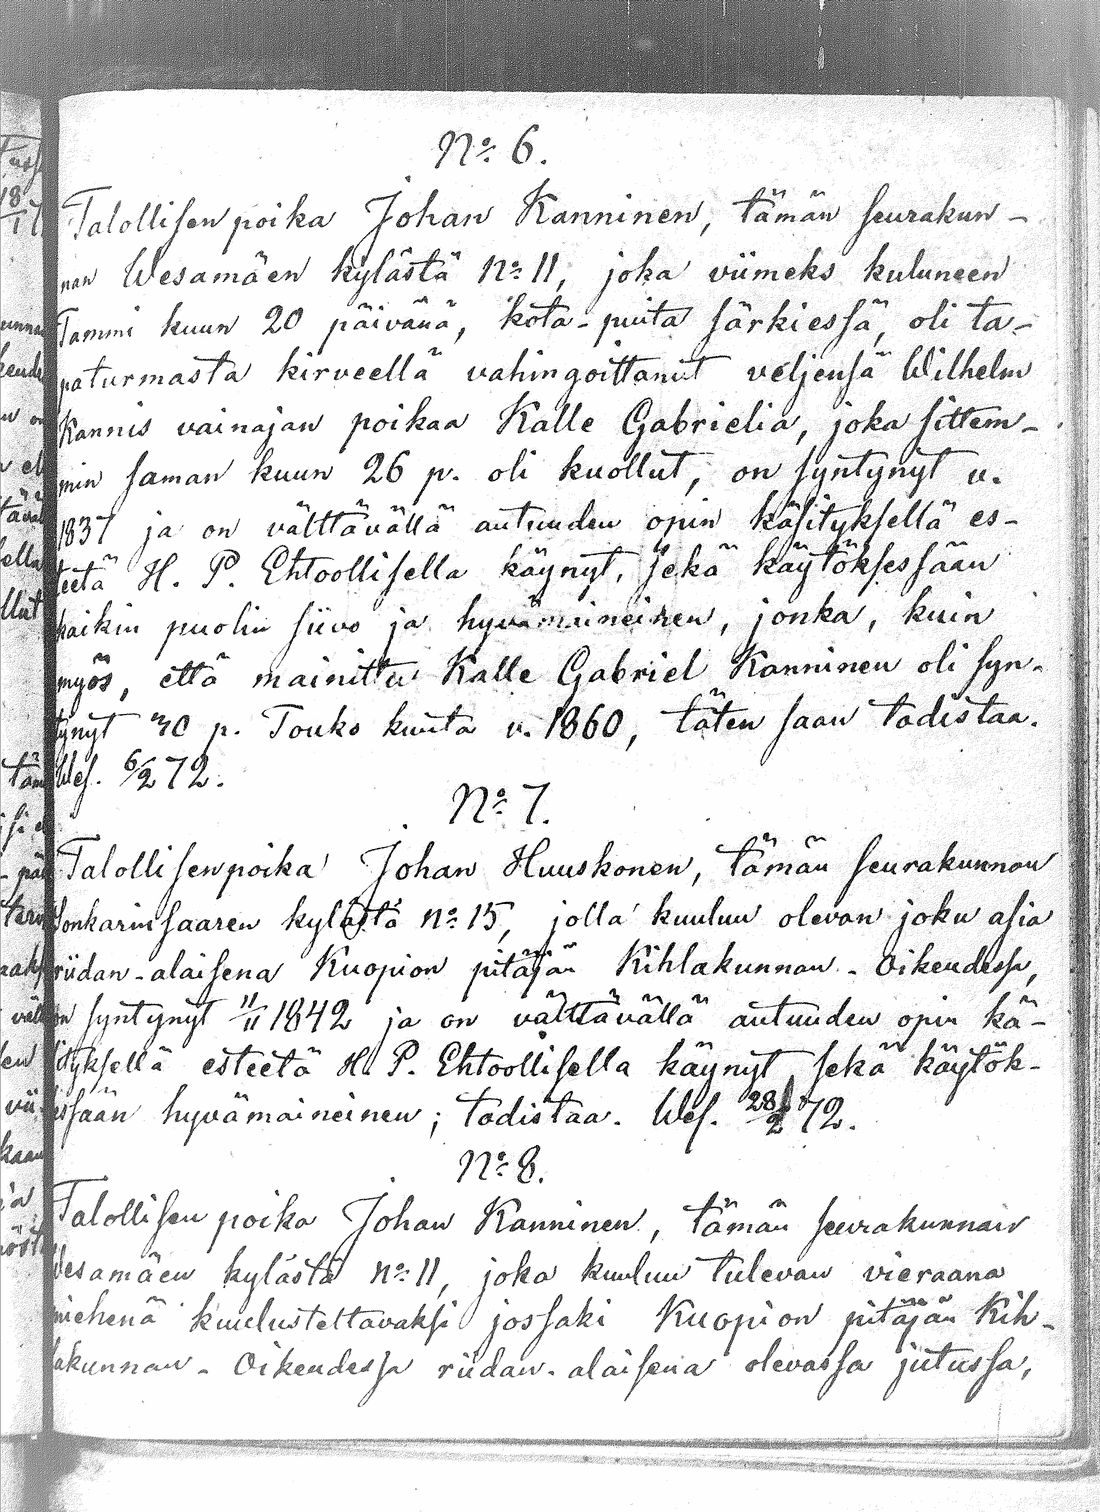 No 6.
Talollisen poika Johan Kanninen, tämän seurakun-
nan Wesamäen kylästä No 11, joka viimeks kuluneen
Tammi kuun 20 päivänä, kota-puita särkiessä, oli ta-
paturmasta kirveellä vahingoittanut veljensä Wilhelm
Kannis vainajan poikaa Kalle Gabrielia, joka sittem-
min saman kuun 26 p. oli kuollut, on syntynyt v.
1837 ja on välttävällä autuuden opin käsityksellä es-
teetä H. P. Ehtoollisella käynyt, sekä käytöksessään
kaikin puolin siivo ja hyvämaineinen, jonka, kuin
myös, että mainittu Kalle Gabriel Kanninen oli syn-
tynyt 30 p. Touko kuuta v. 1860, täten saan todistaa.
Wes. 6/2 72.
No 7.
Talollisenpoika Johan Huuskonen, tämän seurakunnan
Sonkarinsaaren kylästä No 15, jolla kuuluu olevan joku asia
riidan-alaisena Kuopion pitäjän Kihlakunnan-Oikeudessa,
on syntynyt 11/11 1842 ja on välttävällä autuuden opin kä-
sityksellä esteetä H. P. Ehtoollisella käynyt sekä käytök-
sessään hyvämaineinen; todistaa. Wes. 28/2 72.
No 8.
Talollisen poika Johan Kanninen, tämän seurakunnan
Vesamäen kylästä No 11, joka kuuluu tulevan vieraana
miehenä kuulusteltavaksi jossaki Kuopion pitäjän Kih-
lakunnan-Oikeudessa riidan-alaisena olevassa jutussa,